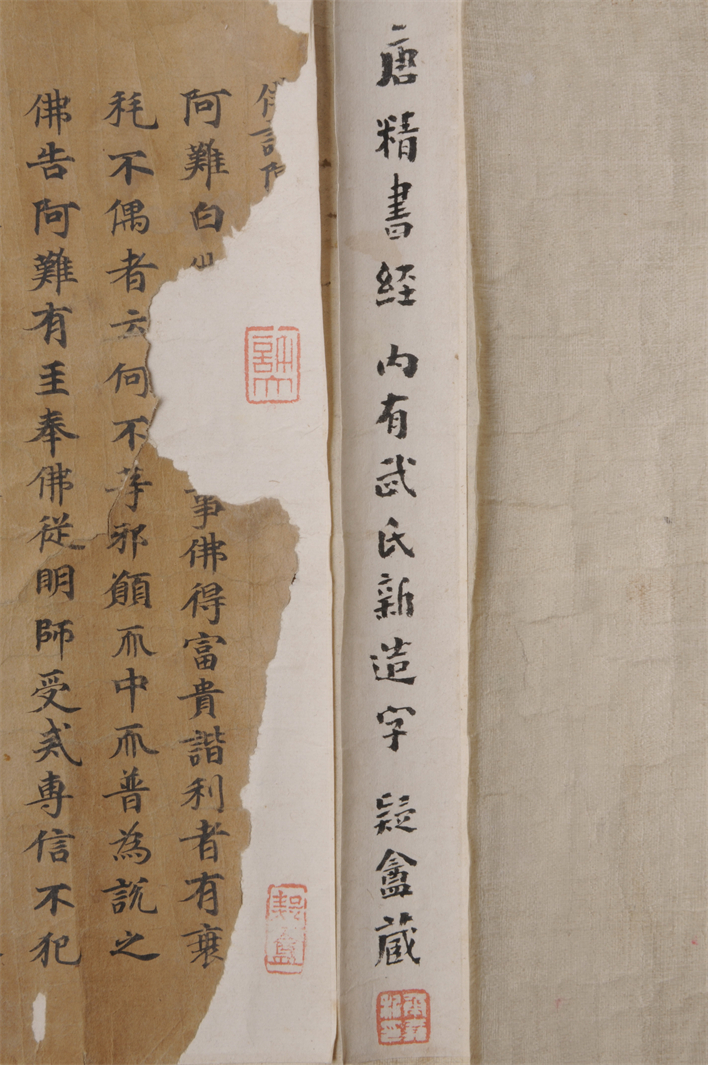 唐精書経 內有武氏新造字 疑盦藏
阿難白 事佛得富貴諧利者有衰
秏不偶者云何不等邪願𠀑中𠀑普為說之
佛告阿難有𤯔奉佛從明師受戒專信不犯
疑盦